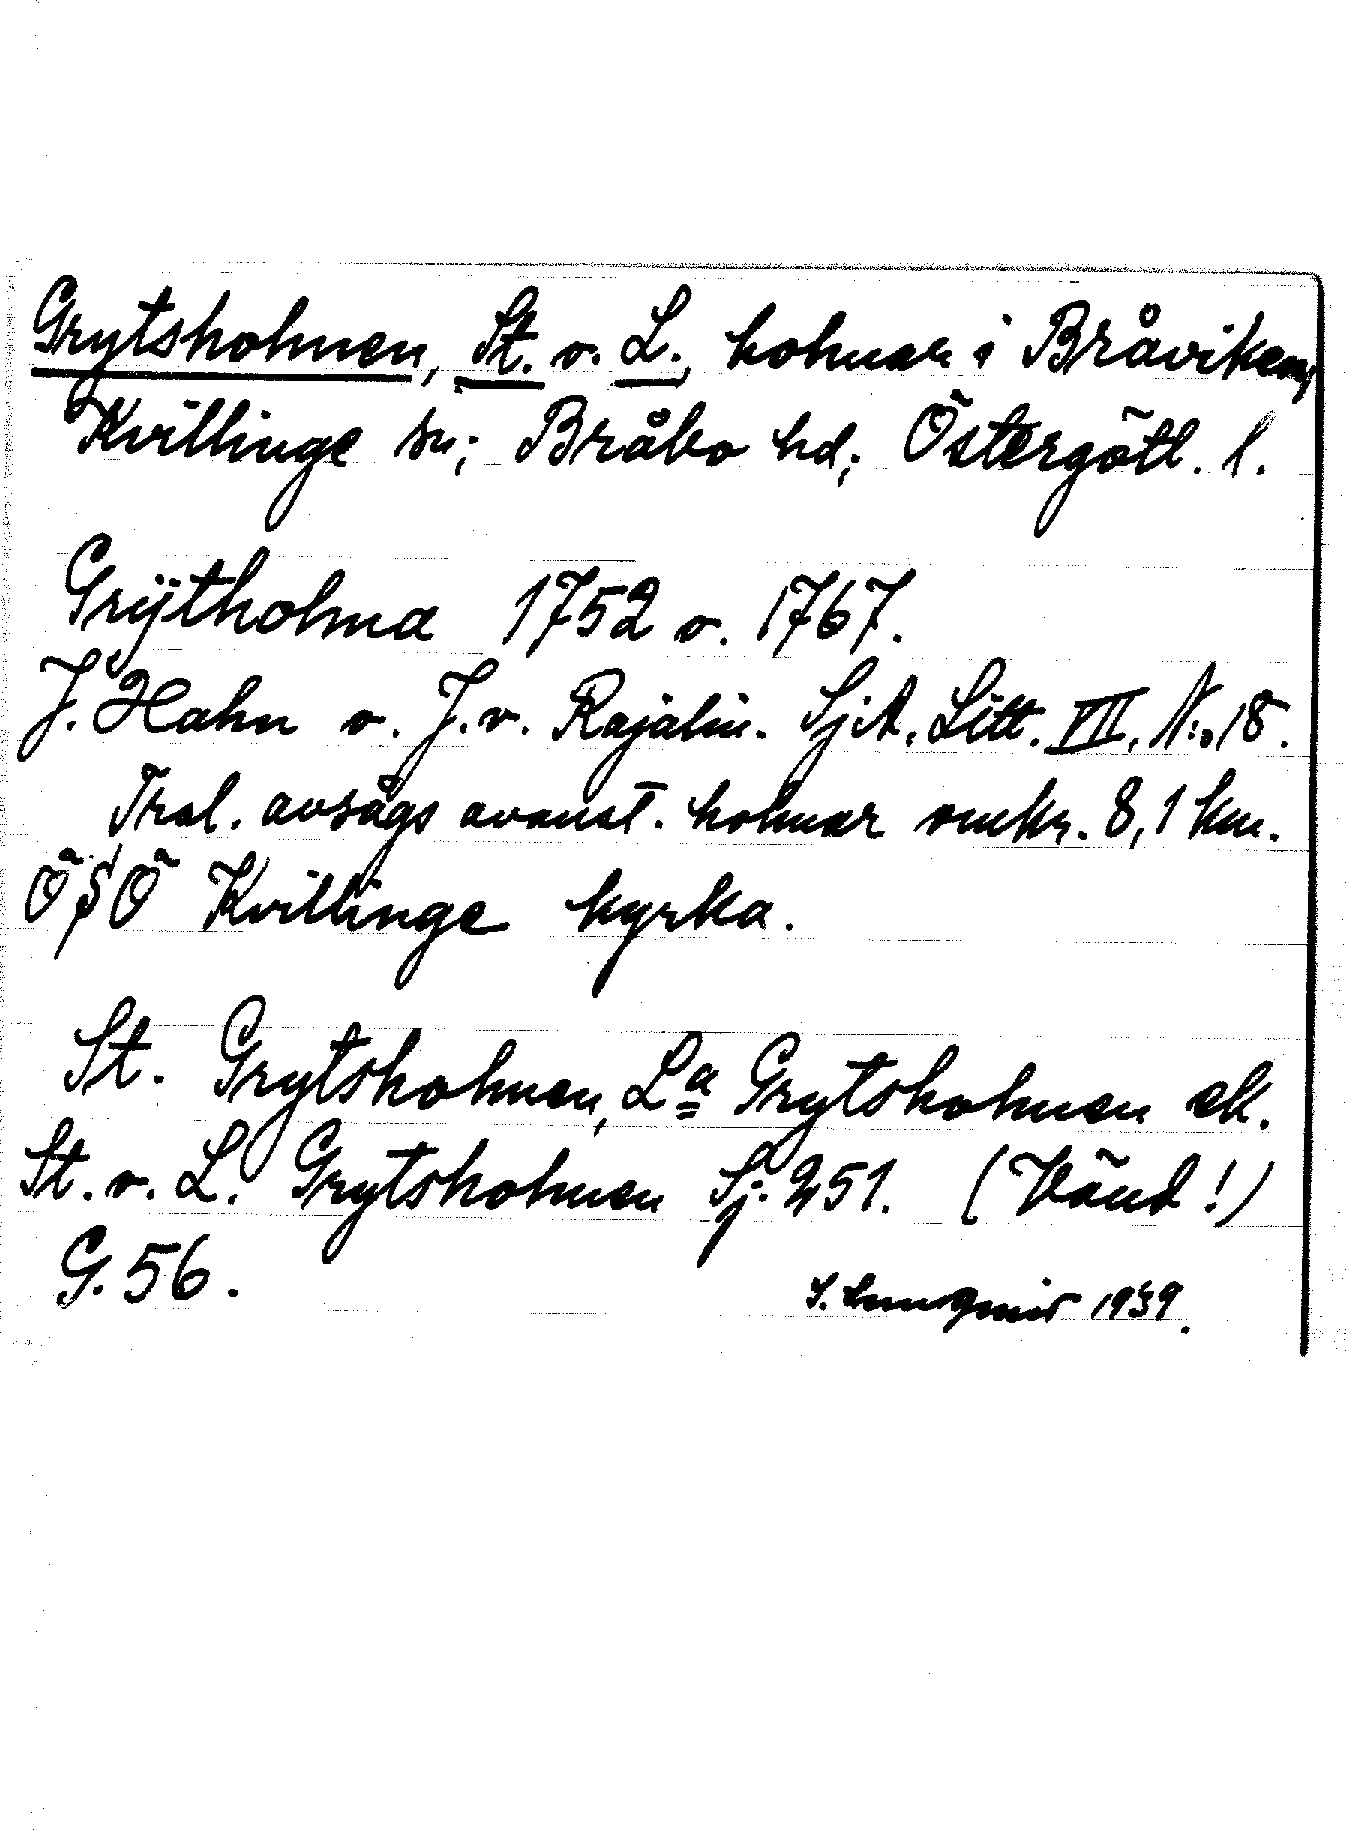 Grytsholmen, St. o. L., holmar i Bråviken,
Kvillinge sn; Bråbo hd; Östergötl. l.
Grÿtholma 1752 o. 1767.
J. Hahn o. J. v. Rajalin. SjA. Litt. VII, N:o 18.
Trol. avsågs ovanst. holmar omkr. 8,1 km.
ÖSÖ Kvillinge kyrka.
St. Grytsholmen, La Grytsholmen ek.
St. o. L. Grytsholmen Sj. 251. (Vänd!)
G. 56.
1939.